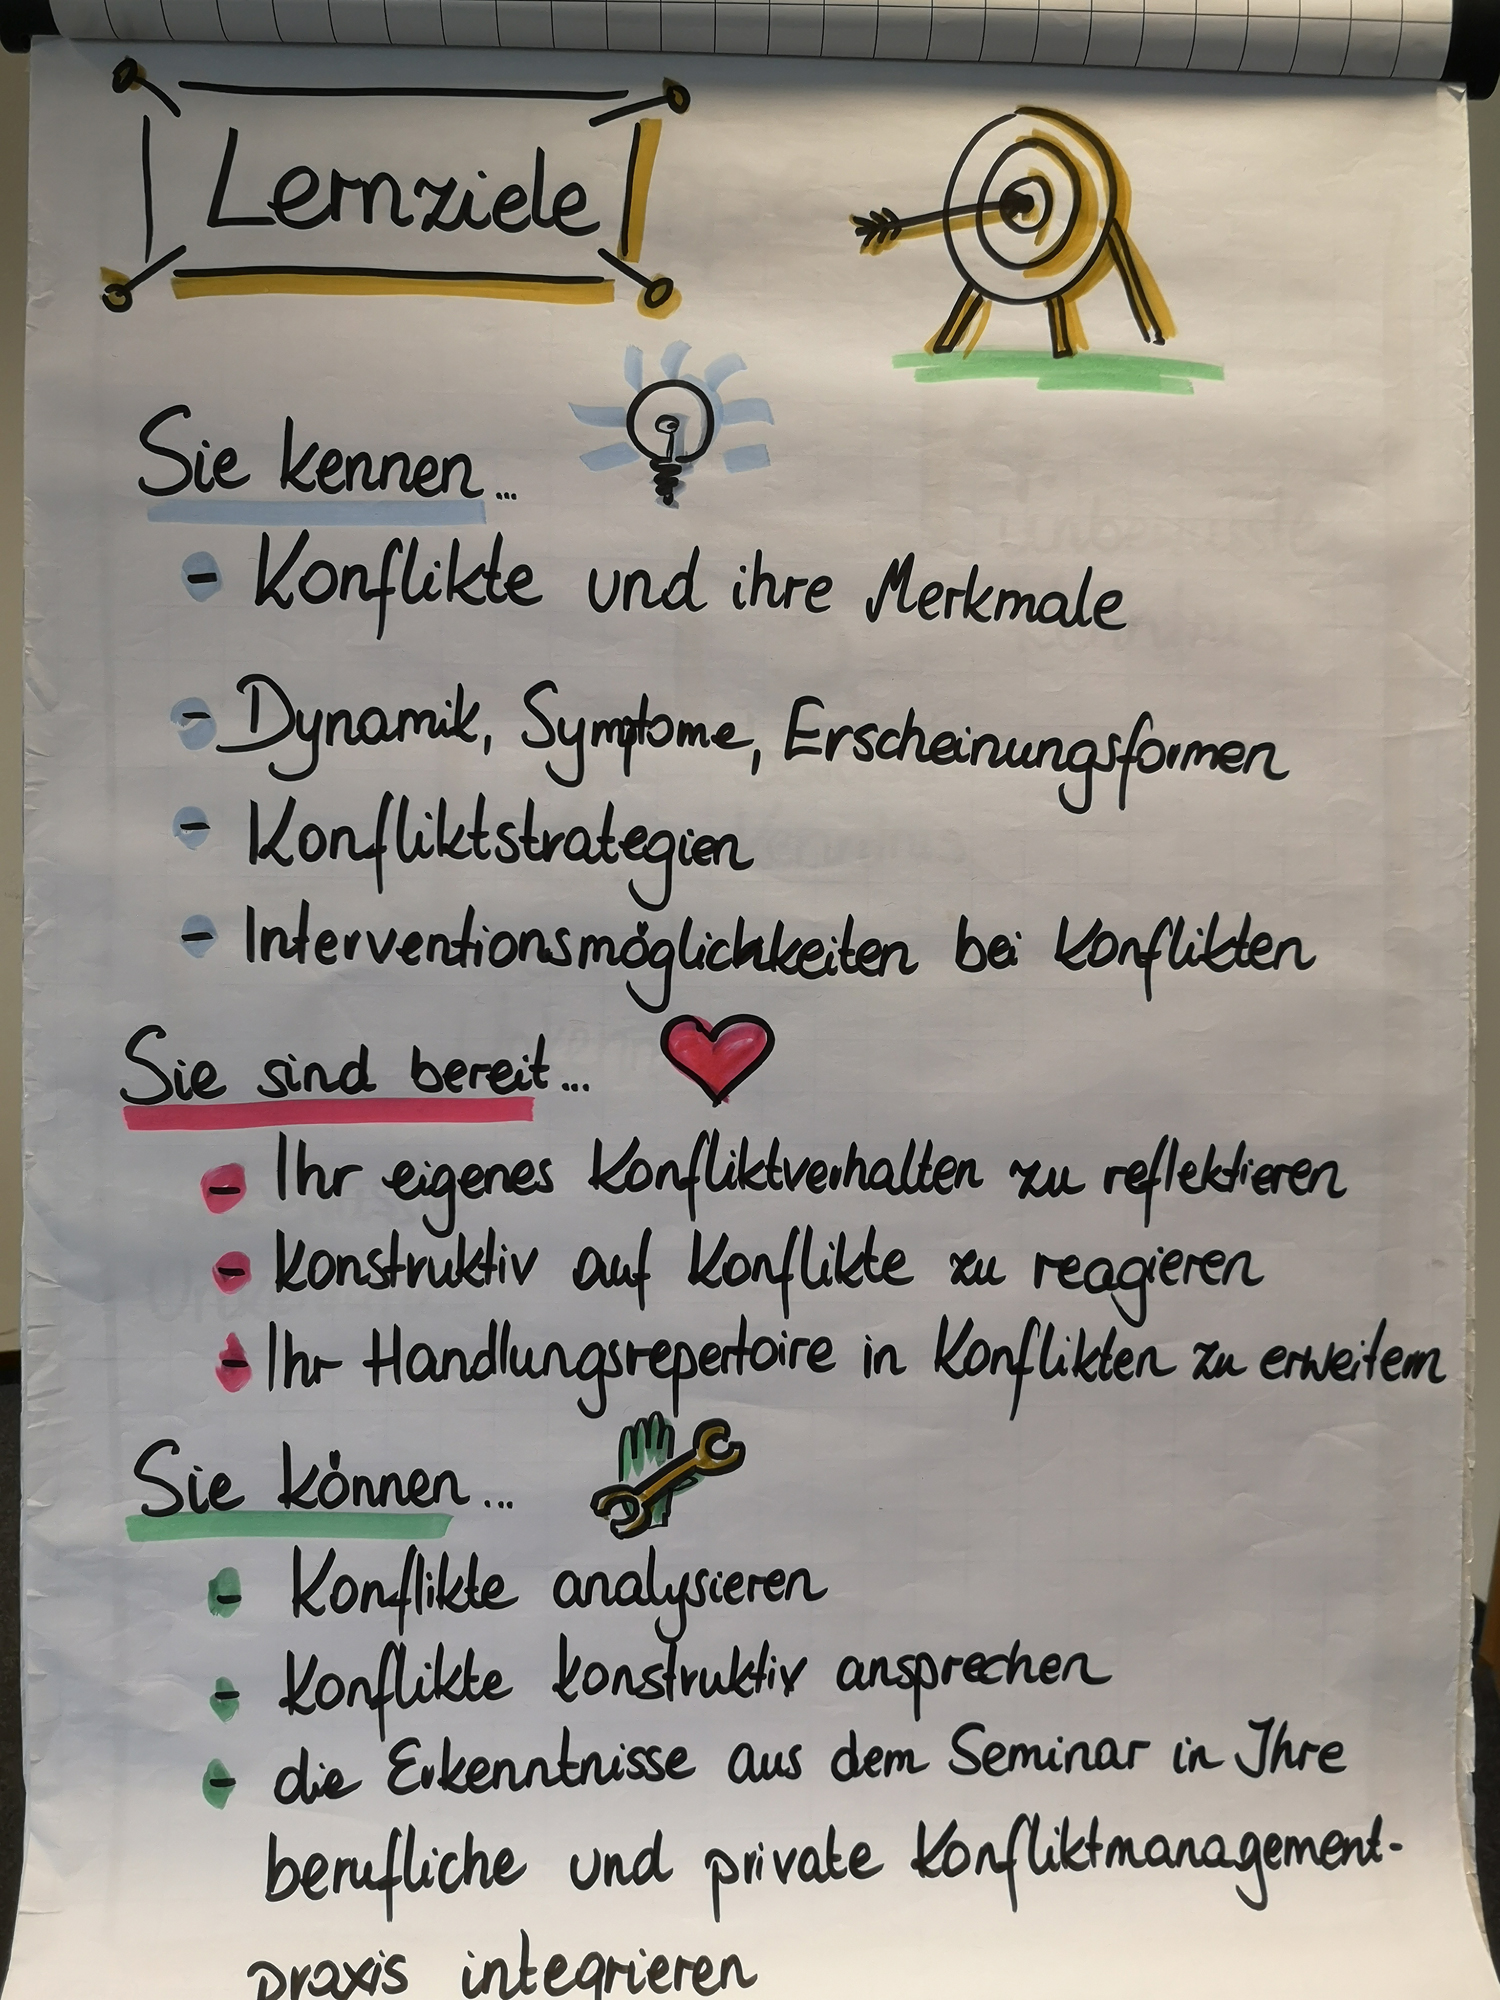 Lernziele
Sie kennen...
- Konflikte und ihre Merkmale
- Dynamik, Symptome, Erscheinungsformen
- Konfliktstrategien
- Interventionsmöglichkeiten bei Konflikten
Sie sind bereit...
- Ihr eigenes Konfliktverhalten zu reflektieren
- Konstruktiv auf Konflikte zu reagieren
- Ihr Handlungsrepertoire in Konflikten zu erweitern
Sie können...
- Konflikte analysieren
- Konflikte konstruktiv ansprechen
- die Erkenntnisse aus dem Seminar in Ihre
berufliche und private Konfliktmanagement-
praxis integrieren